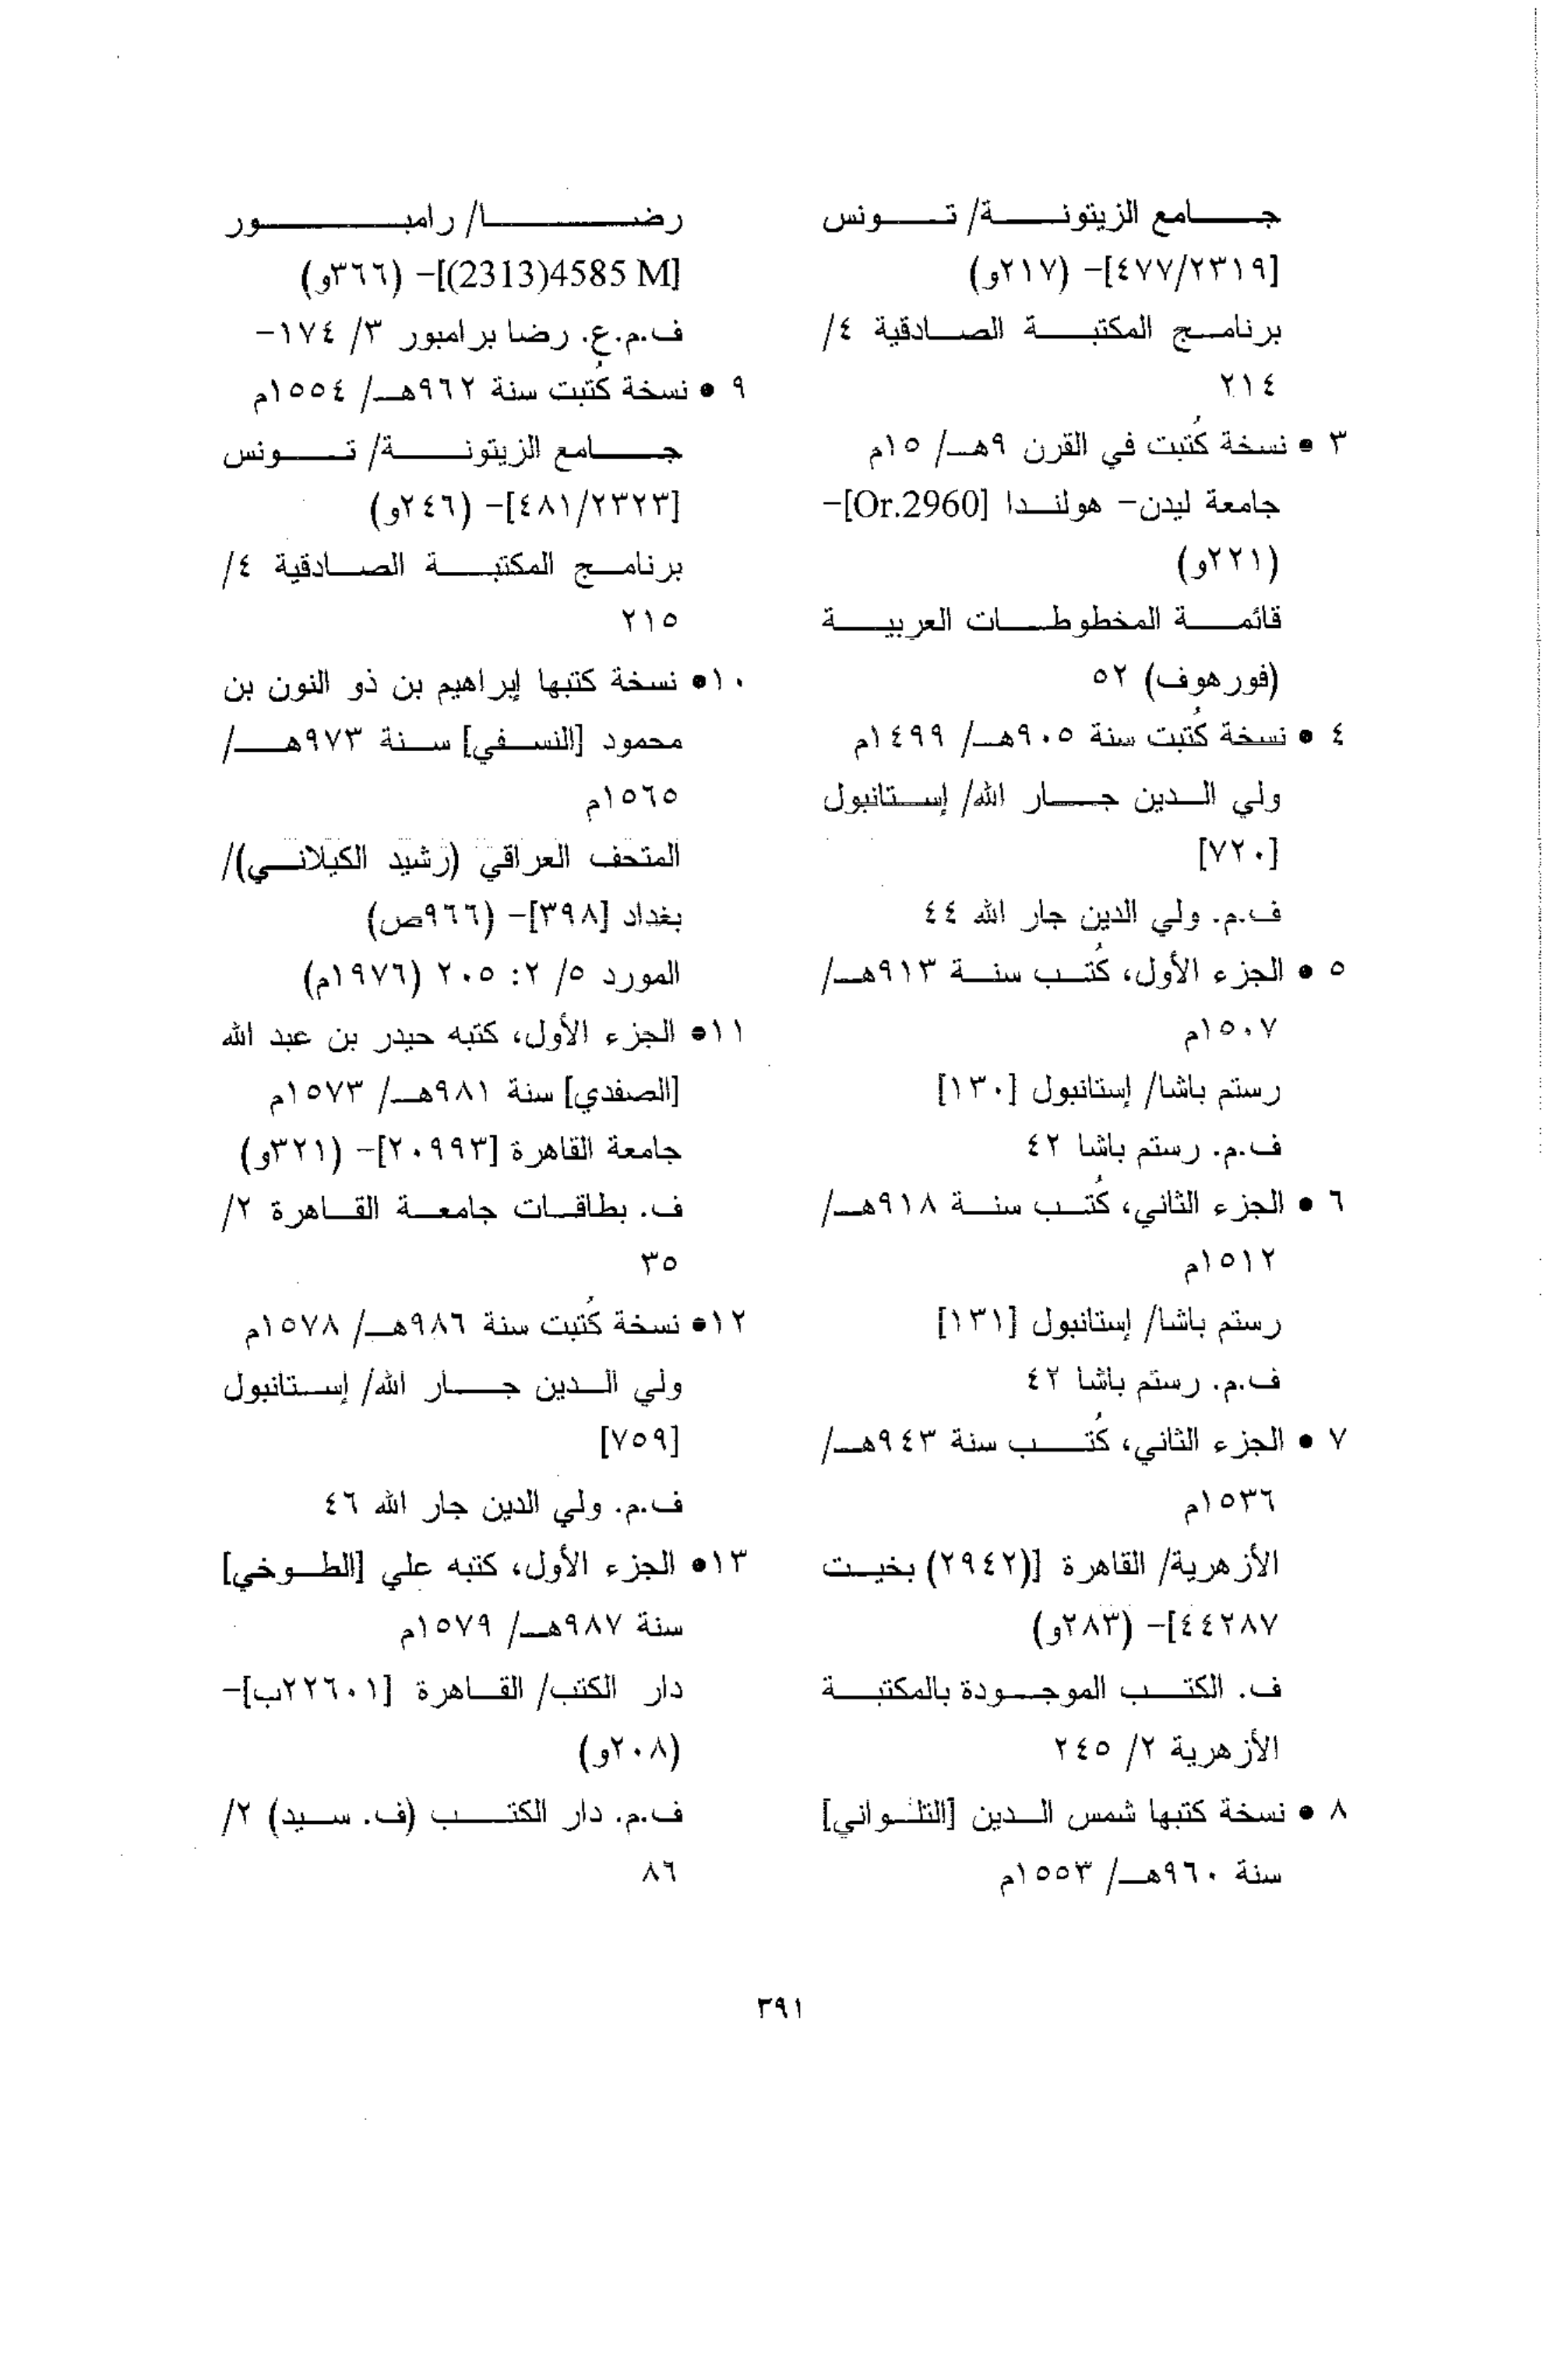 جامع الزيتونة/ تونس
[٤٧٧/٢٣١٩]- (٢١٧و)
برنامج المكتبة الصادقية ٤/
٢١٤
٣ • نسخة كُتبت في القرن ٩هـ/ ١٥م
جامعة ليدن- هولندا [Or.2960]-
(٢٢١و)
قائمة المخطوطات العربية
(فورهوف) ٥٢
٤ • نسخة كُتبت سنة ٩٠٥هـ/ ١٤٩٩م
ولي الدين جار الله/ إستانبول
[٧٢٠]
ف.م. ولي الدين جار الله ٤٤
٥ • الجزء الأول، كُتب سنة ٩١٣هـ/
١٥٠٧م
رستم باشا/ إستانبول [١٣٠]
ف.م. رستم باشا ٤٢
٦ • الجزء الثاني، كُتب سنة ٩١٨هـ/
١٥١٢م
رستم باشا/ إستانبول [١٣١]
ف.م. رستم باشا ٤٢
٧ • الجزء الثاني، كُتب سنة ٩٤٣هـ/
١٥٣٦م
الأزهرية/ القاهرة [(٢٩٤٢) بخيت
٤٤٢٨٧]- (٢٨٣و)
ف. الكتب الموجودة بالمكتبة
الأزهرية ٢/ ٢٤٥
٨ • نسخة كتبها شمس الدين [التلواني]
سنة ٩٦٠هـ/ ١٥٥٣م
رضا/ رامبور
[4585 M(2313)]- (٣٦٦و)
ف.م.ع. رضا برامبور ٣/ ١٧٤-
٩ • نسخة كُتبت سنة ٩٦٢هـ/ ١٥٥٤م
جامع الزيتونة/ تونس
[٤٨١/٢٣٢٣]- (٢٤٦و)
برنامج المكتبة الصادقية ٤/
٢١٥
١٠• نسخة كتبها إبراهيم بن ذو النون بن
محمود [النسفي] سنة ٩٧٣هـ/
١٥٦٥م
المتحف العراقي (رشيد الكيلاني)/
بغداد [٣٩٨]- (٩٦٦ص)
المورد ٥/ ٢: ٢٠٥ (١٩٧٦م)
١١• الجزء الأول، كتبه حيدر بن عبد الله
[الصفدي] سنة ٩٨١هـ/ ١٥٧٣م
جامعة القاهرة [٢٠٩٩٣]- (٣٢١و)
ف. بطاقات جامعة القاهرة ٢/
٣٥
١٢• نسخة كُتبت سنة ٩٨٦هـ/ ١٥٧٨م
ولي الدين جار الله/ إستانبول
[٧٥٩]
ف.م. ولي الدين جار الله ٤٦
١٣• الجزء الأول، كتبه علي [الطوخي]
سنة ٩٨٧هـ/ ١٥٧٩م
دار الكتب/ القاهرة [٢٢٦٠١ب]-
(٢٠٨و)
ف.م. دار الكتب (ف. سيد) ٢/
٨٦
٣٩١